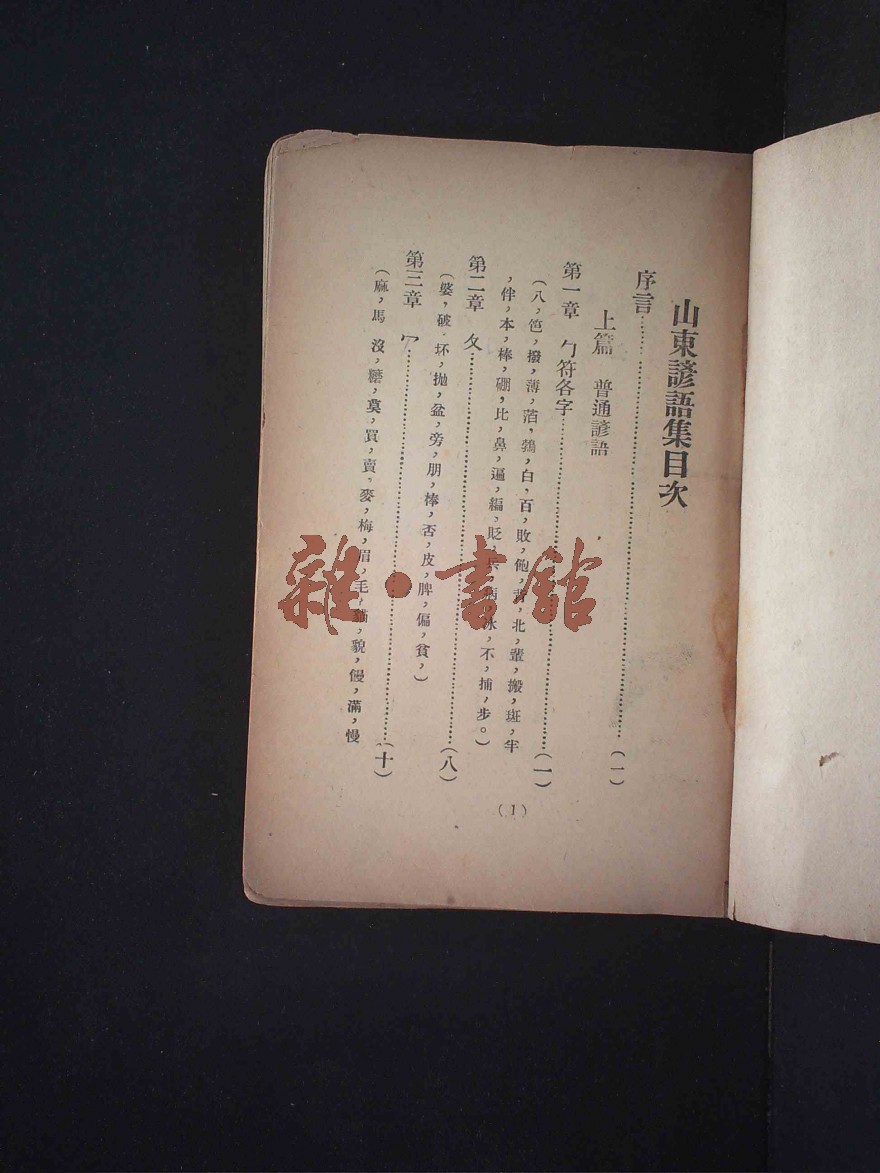 山東諺語集目次
序言……………………(一)
上篇　普通諺語
第一章　ㄅ符各字……………………(一)
(八，笆，撥，薄，箔，鵓，白，百，敗，北，輩，搬，斑，半
，伴，本，棒，硼，比，鼻，遍，編，貶，冰，不，捕，步。)
第二章　ㄆ……………………(八)
(婆，破，坏，拋，盆，旁，朋，棒，否，皮，脾，偏，貧，)
第三章　ㄇ……………………(十)
(麻，馬，沒，糖，莫，買，賣，麥，梅，眉，毛，貌，饅，滿，慢
(1)
雜·書館